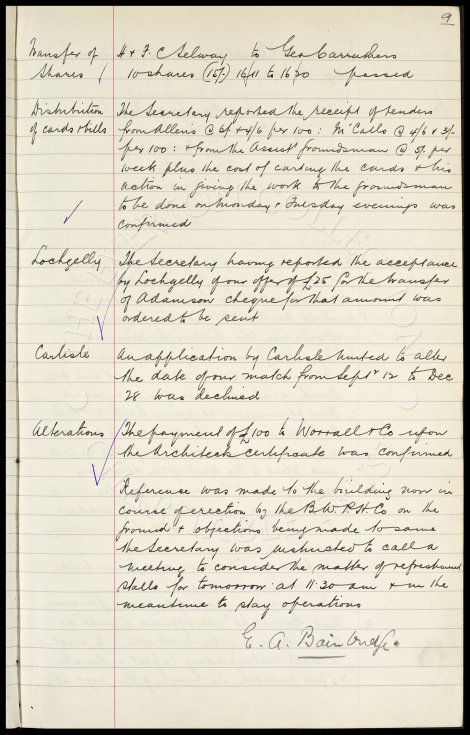 9
Transfer of H & F. C Selway to Geo Carruthers
Shares 10 shares (15/-) 1611 to 1620 passed
Distribution The Secretary reported the receipt of tenders
of cards & bills from Allens @ 6/- & 4/6 per 100: McCalls @ 4/6 & 3/-
per 100: & from the Assist groundsman @ 5/- per
week plus the cost of carting the cards & his
action in giving the work to the groundsman
to be done on Monday & Tuesday evenings was
confirmed
Lochgelly The Secretary having reported the acceptance
by Lochgelly of our offer of £25 for the transfer
of Adamson cheque for that amount was
ordered to be sent
Carlisle An application by Carlisle United to alter
the date of our match from Septr 12 to Dec
28 was declined
Alterations The payment of £100 to Worrall & Co upon
the Architects certificate was confirmed
Reference was made to the building now in
course of erection by the B. W. R. H. Co on the
ground & objections being made to same
the Secretary was instructed to call a
meeting to consider the matter of refreshment
stalls for tomorrow at 11.30 am & in the
meantime to stay operations
E. A. Bainbridge